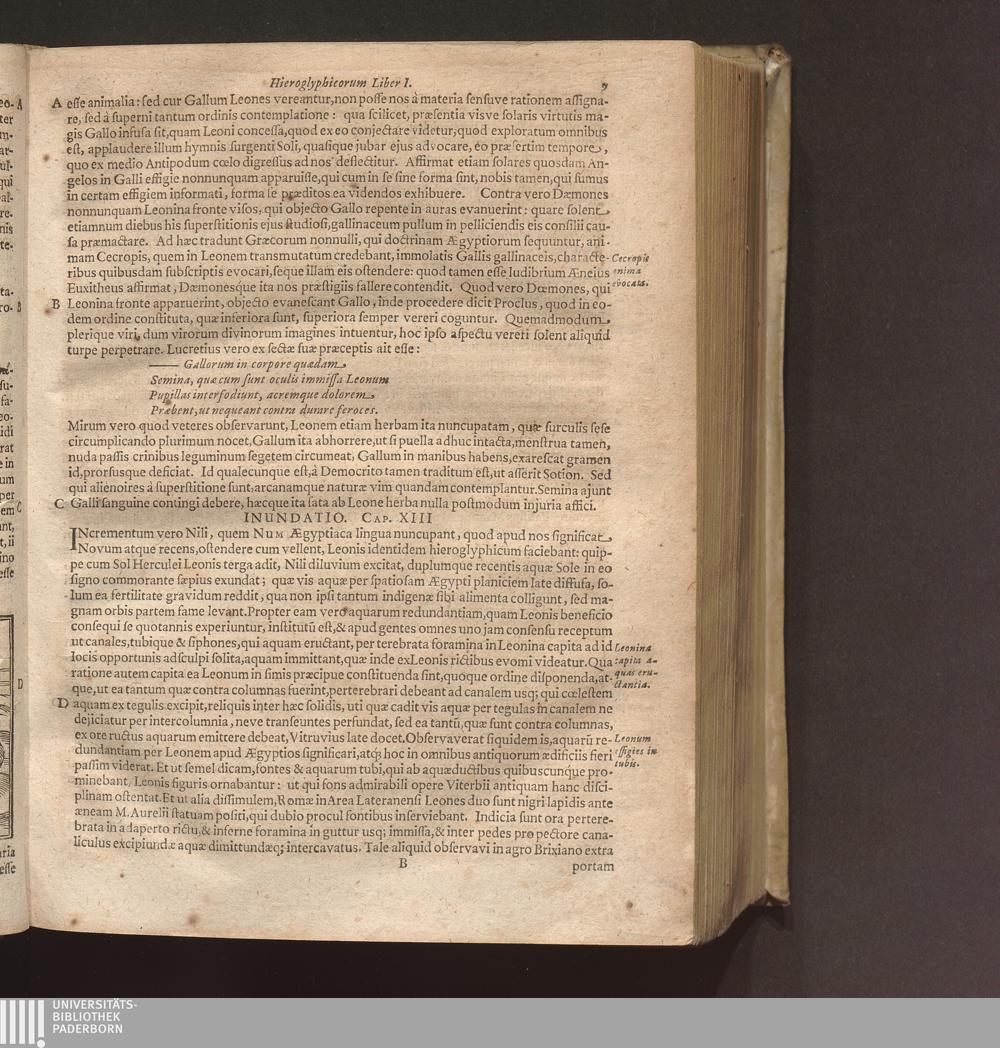 Hieroglyphicorum Liber I. 9
A esse animalia: sed cur Gallum Leones vereantur, non posse nos à materia sensuve rationem assigna-
re, sed à superni tantum ordinis contemplatione: qua scilicet, præsentia visve solaris virtutis ma-
gis Gallo infusa sit, quam Leoni concessa, quod ex eo conjectare videtur, quod exploratum omnibus
est, applaudere illum hymnis surgenti Soli, quasique jubar ejus advocare, eo præsertim tempore,
quo ex medio Antipodum cœlo digressus ad nos deflectitur. Affirmat etiam solares quosdam An-
gelos in Galli effigie nonnunquam apparuisse, qui cum in se sine forma sint, nobis tamen, qui sumus
in certam effigiem informati, forma se præditos ea videndos exhibuere. Contra vero Dæmones
nonnunquam Leonina fronte visos, qui objecto Gallo repente in auras evanuerint: quare solent
etiamnum diebus his superstitionis ejus studiosi, gallinaceum pullum in pelliciendis eis consilii cau-
sa præmactare. Ad hæc tradunt Græcorum nonnulli, qui doctrinam Ægyptiorum sequuntur, ani-
mam Cecropis, quem in Leonem transmutatum credebant, immolatis Gallis gallinaceis, characte-
Cecropis
ribus quibusdam subscriptis evocari, seque illam eis ostendere: quod tamen esse ludibrium Æneius
anima
Euxitheus affirmat, Dæmonesque ita nos præstigiis fallere contendit. Quod vero Dœmones, qui
evocata.
B Leonina fronte apparuerint, objecto evanescant Gallo, inde procedere dicit Proclus, quod in eo-
dem ordine constituta, quæ inferiora sunt, superiora semper vereri coguntur. Quemadmodum
plerique viri, dum virorum divinorum imagines intuentur, hoc ipso aspectu vereri solent aliquid
turpe perpetrare. Lucretius vero ex sectæ suæ præceptis ait esse:
—— Gallorum in corpore quædam
Semina, quæ cum sunt oculis immissa Leonum
Pupillas interfodiunt, acremque dolorem
Præbent, ut nequeant contra durare feroces.
Mirum vero quod veteres observarunt, Leonem etiam herbam ita nuncupatam, quæ surculis sese
circumplicando plurimum nocet, Gallum ita abhorrere, ut si puella adhuc intacta, menstrua tamen,
nuda passis crinibus leguminum segetem circumeat, Gallum in manibus habens, exarescat gramen
id, prorsusque deficiat. Id qualecunque est, à Democrito tamen traditum est, ut asserit Sotion. Sed
qui alienoires à superstitione sunt, arcanamque naturæ vim quandam contemplantur. Semina ajunt
C Galli sanguine contingi debere, hæcque ita sata ab Leone herba nulla postmodum injuria affici.
INUNDATIO. CAP. XIII
INcrementum vero Nili, quem NUM Ægyptiaca lingua nuncupant, quod apud nos significat
Novum atque recens, ostendere cum vellent, Leonis identidem hieroglyphicum faciebant: quip-
pe cum Sol Herculei Leonis terga adit, Nili diluvium excitat, duplumque recentis aquæ Sole in eo
signo commorante sæpius exundat; quæ vis aquæ per spatiosam Ægypti planiciem late diffusa, so-
lum ea fertilitate gravidum reddit, qua non ipsi tantum indigenæ sibi alimenta colligunt, sed ma-
gnam orbis partem fame levant. Propter eam vero aquarum redundantiam, quam Leonis beneficio
consequi se quotannis experiuntur, institutũ est, & apud gentes omnes uno jam consensu receptum
ut canales, tubique & siphones, qui aquam eructant, per terebrata foramina in Leonina capita ad id
Leonina
locis opportunis adsculpi solita, aquam immittant, quæ inde ex Leonis rictibus evomi videatur. Qua
capita a-
ratione autem capita ea Leonum in simis præcipue constituenda sint, quoque ordine disponenda, at-
quas eru-
que, ut ea tantum quæ contra columnas fuerint, perterebrari debeant ad canalem usq; qui cœlestem
ctantia.
D aquam ex tegulis excipit, reliquis inter hæc solidis, uti quæ cadit vis aquæ per tegulas in canalem ne
dejiciatur per intercolumnia, neve transeuntes persundat, sed ea tantũ, quæ sunt contra columnas,
ex ore ructus aquarum emittere debeat, Vitruvius late docet. Observaverat siquidem is, aquarũ re-
Leonum
dundantiam per Leonem apud Ægyptios significari, atq; hoc in omnibus antiquorum ædificiis fieri
effigies in
passim viderat. Et ut semel dicam, fontes & aquarum tubi, qui ab aquæductibus quibuscunque pro-
tubis.
minebant, Leonis figuris ornabantur: ut qui fons admirabili opere Viterbii antiquam hanc disci-
plinam ostentat. Et ut alia dissimulem, Romæ in Area Lateranensi Leones duo sunt nigri lapidis ante
æneam M. Aurelii statuam positi, qui dubio procul fontibus inserviebant. Indicia sunt ora pertere-
brata in adaperto rictu, & inferne foramina in guttur usq; immissa, & inter pedes pro pectore cana-
liculus excipiundæ aquæ dimittundæq; intercavatus. Tale aliquid observavi in agro Brixiano extra
B portam
UNIVERSITÄTS-
BIBLIOTHEK
PADERBORN